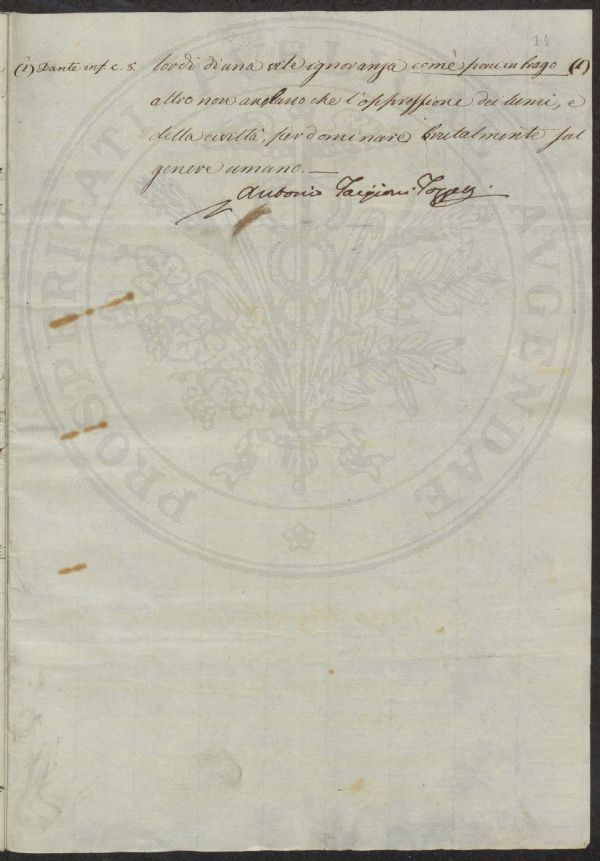 14
(1) Dante inf. c. 8. lordi di una vile ignoranza come porci in brago (1)
altro non anelano che l'oppressione dei lumi, e
della civiltà, per dominare brutalmente sul
genere umano. —
Antonio Targioni Tozzetti.
PROSPERITATI AVGENDAE